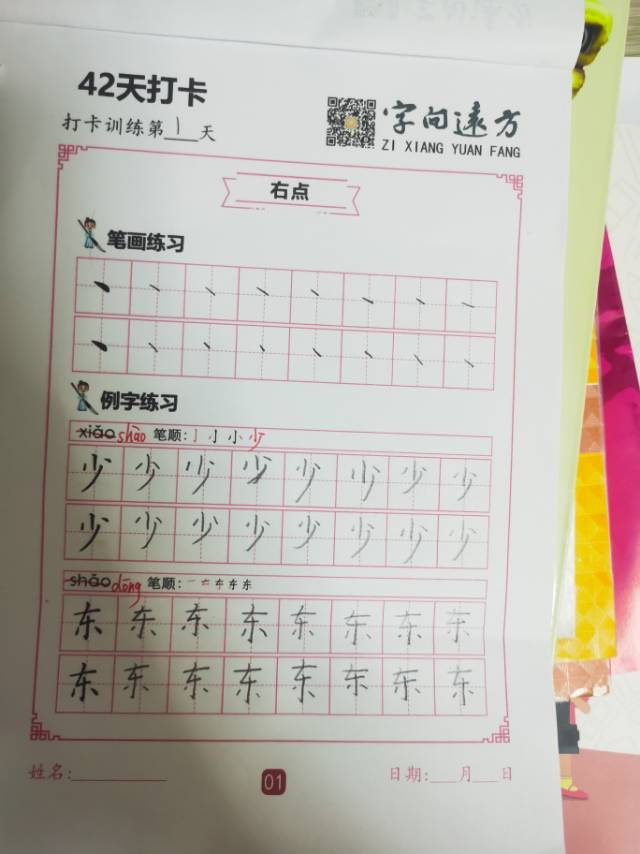 42天打卡
打卡训练第1天
字向远方
ZI XIANG YUAN FANG
右点
笔画练习
例字练习
xiǎo shào 笔顺: 亅 小 少
少 少 少 少 少 少 少 少
少 少 少 少 少 少 少 少
shǎo dōng 笔顺: 一 东
东 东 东 东 东 东 东 东
东 东 东 东 东 东 东 东
姓名: 01 日期: 月 日